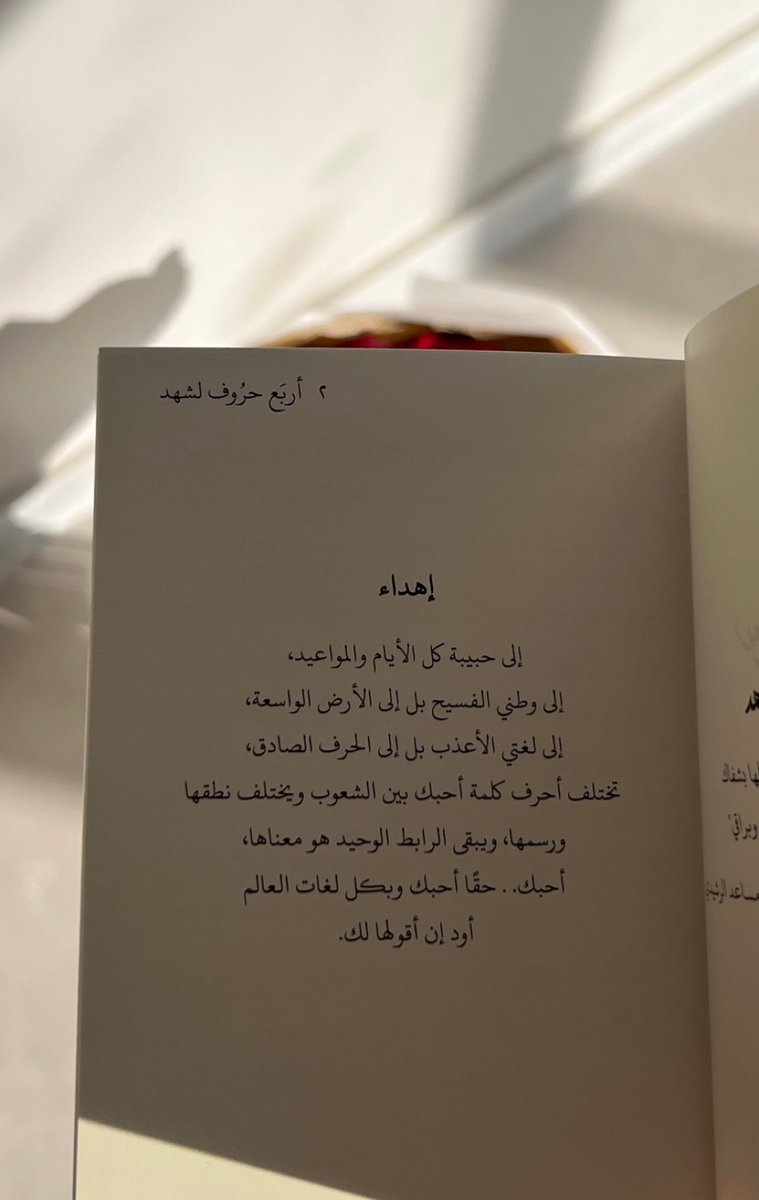 ٢ أربَع حرُوف لشهد
إهداء
إلى حبيبة كل الأيام والمواعيد،
إلى وطني الفسيح بل إلى الأرض الواسعة،
إلى لغتي الأعذب بل إلى الحرف الصادق،
تختلف أحرف كلمة أحبك بين الشعوب ويختلف نطقها
ورسمها، ويبقى الرابط الوحيد هو معناها،
أحبك.. حقًا أحبك وبكل لغات العالم
أود إن أقولها لك.
بشفاك
وبراقي"